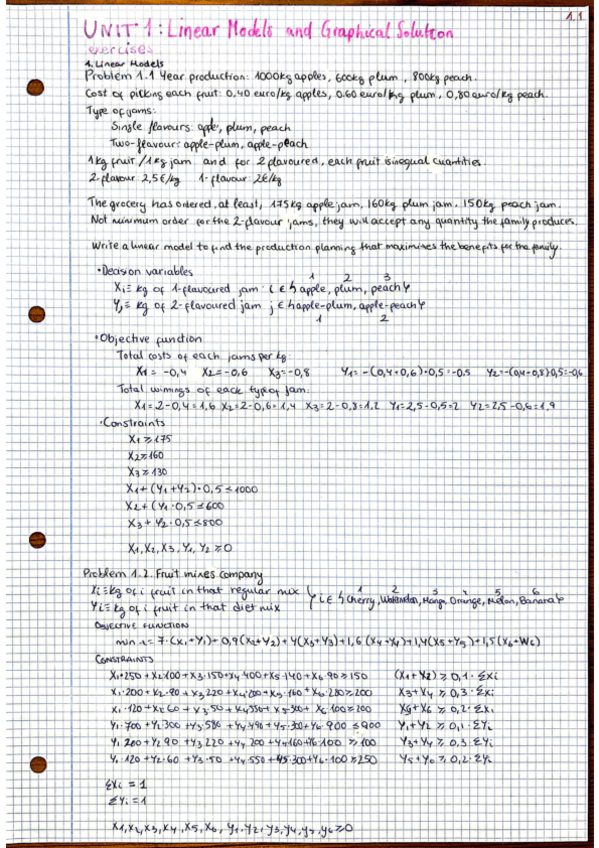 1.1
UNIT 1: Linear Models and Graphical Solution
exercises
1. Linear Models
Problem 1.1 Year production: 1000kg apples, 600kg plum, 800kg peach.
Cost of picking each fruit: 0,40 euro/kg apples, 0.60 euro/kg plum, 0,80 euro/kg peach.
Type of jams:
Single flavours: apple, plum, peach
Two-flavour: apple-plum, apple-peach
1kg fruit / 1kg jam and for 2 flavoured, each fruit is inequal cuantities.
2-flavour: 2,5€/kg 1-flavour: 2€/kg
The grocery has ordered, at least, 175kg apple jam, 160kg plum jam, 150kg peach jam.
Not minimum order for the 2-flavour jams, they will accept any quantity the family produces.
Write a linear model to find the production planning that maximises the benefits for the family.
• Decision variables
1 2 3
Xi ≡ kg of 1-flavoured jam i ∈ {apple, plum, peach}
Yj ≡ kg of 2-flavoured jam j ∈ {apple-plum, apple-peach}
1 2
• Objective function
Total costs of each jams per kg:
X1 = -0,4 X2 = -0,6 X3 = -0,8 Y1 = -(0,4+0,6)·0,5 = -0.5 Y2 = -(0,4+0,8)0,5 = -0,6
Total winnings of each type of jam:
X1 = 2-0,4 = 1,6 X2 = 2-0,6 = 1,4 X3 = 2-0,8 = 1,2 Y1 = 2,5-0,5 = 2 Y2 = 2,5-0,6 = 1,9
• Constraints
X1 ≥ 175
X2 ≥ 160
X3 ≥ 130
X1 + (Y1+Y2)·0,5 ≤ 1000
X2 + (Y1·0,5 ≤ 600
X3 + Y2·0,5 ≤ 800
X1, X2, X3, Y1, Y2 ≥ 0
Problem 1.2. Fruit mixes company
1 2 3 4 5 6
Xi ≡ kg of i fruit in that regular mix } i ∈ {Cherry, Watermelon, Mango, Orange, Melon, Banana}
Yi ≡ kg of i fruit in that diet mix
OBJECTIVE FUNCTION
min z = 7·(X1+Y1) + 0,9(X2+Y2) + 4(X3+Y3) + 1,6(X4+Y4) + 1,4(X5+Y5) + 1,5(X6+
CONSTRAINTS
X1·250 + X2·100 + X3·150 + X4·400 + X5·140 + X6·90 ≥ 150 (X1+X2) ≥ 0,1·ΣXi
X1·200 + X2·90 + X3·220 + X4·200 + X5·160 + X6·280 ≥ 200 X3+X4 ≥ 0,3·ΣXi
X1·120 + X2·60 + X3·50 + X4·550 + X5·300 + X6·100 ≥ 200 X5+X6 ≥ 0,2·ΣXi
Y1·700 + Y2·300 + Y3·580 + Y4·490 + Y5·300 + Y6·900 ≤ 900 Y1+Y2 ≥ 0,1·ΣYi
Y1·200 + Y2·90 + Y3·220 + Y4·200 + Y5·160 + Y6·100 ≥ 100 Y3+Y4 ≥ 0,3·ΣYi
Y1·120 + Y2·60 + Y3·50 + Y4·550 + Y5·300 + Y6·100 ≥ 250 Y5+Y6 ≥ 0,2·ΣYi
ΣXi = 1
ΣYi = 1
X1, X2, X3, X4, X5, X6, Y1, Y2, Y3, Y4, Y5, Y6 ≥ 0